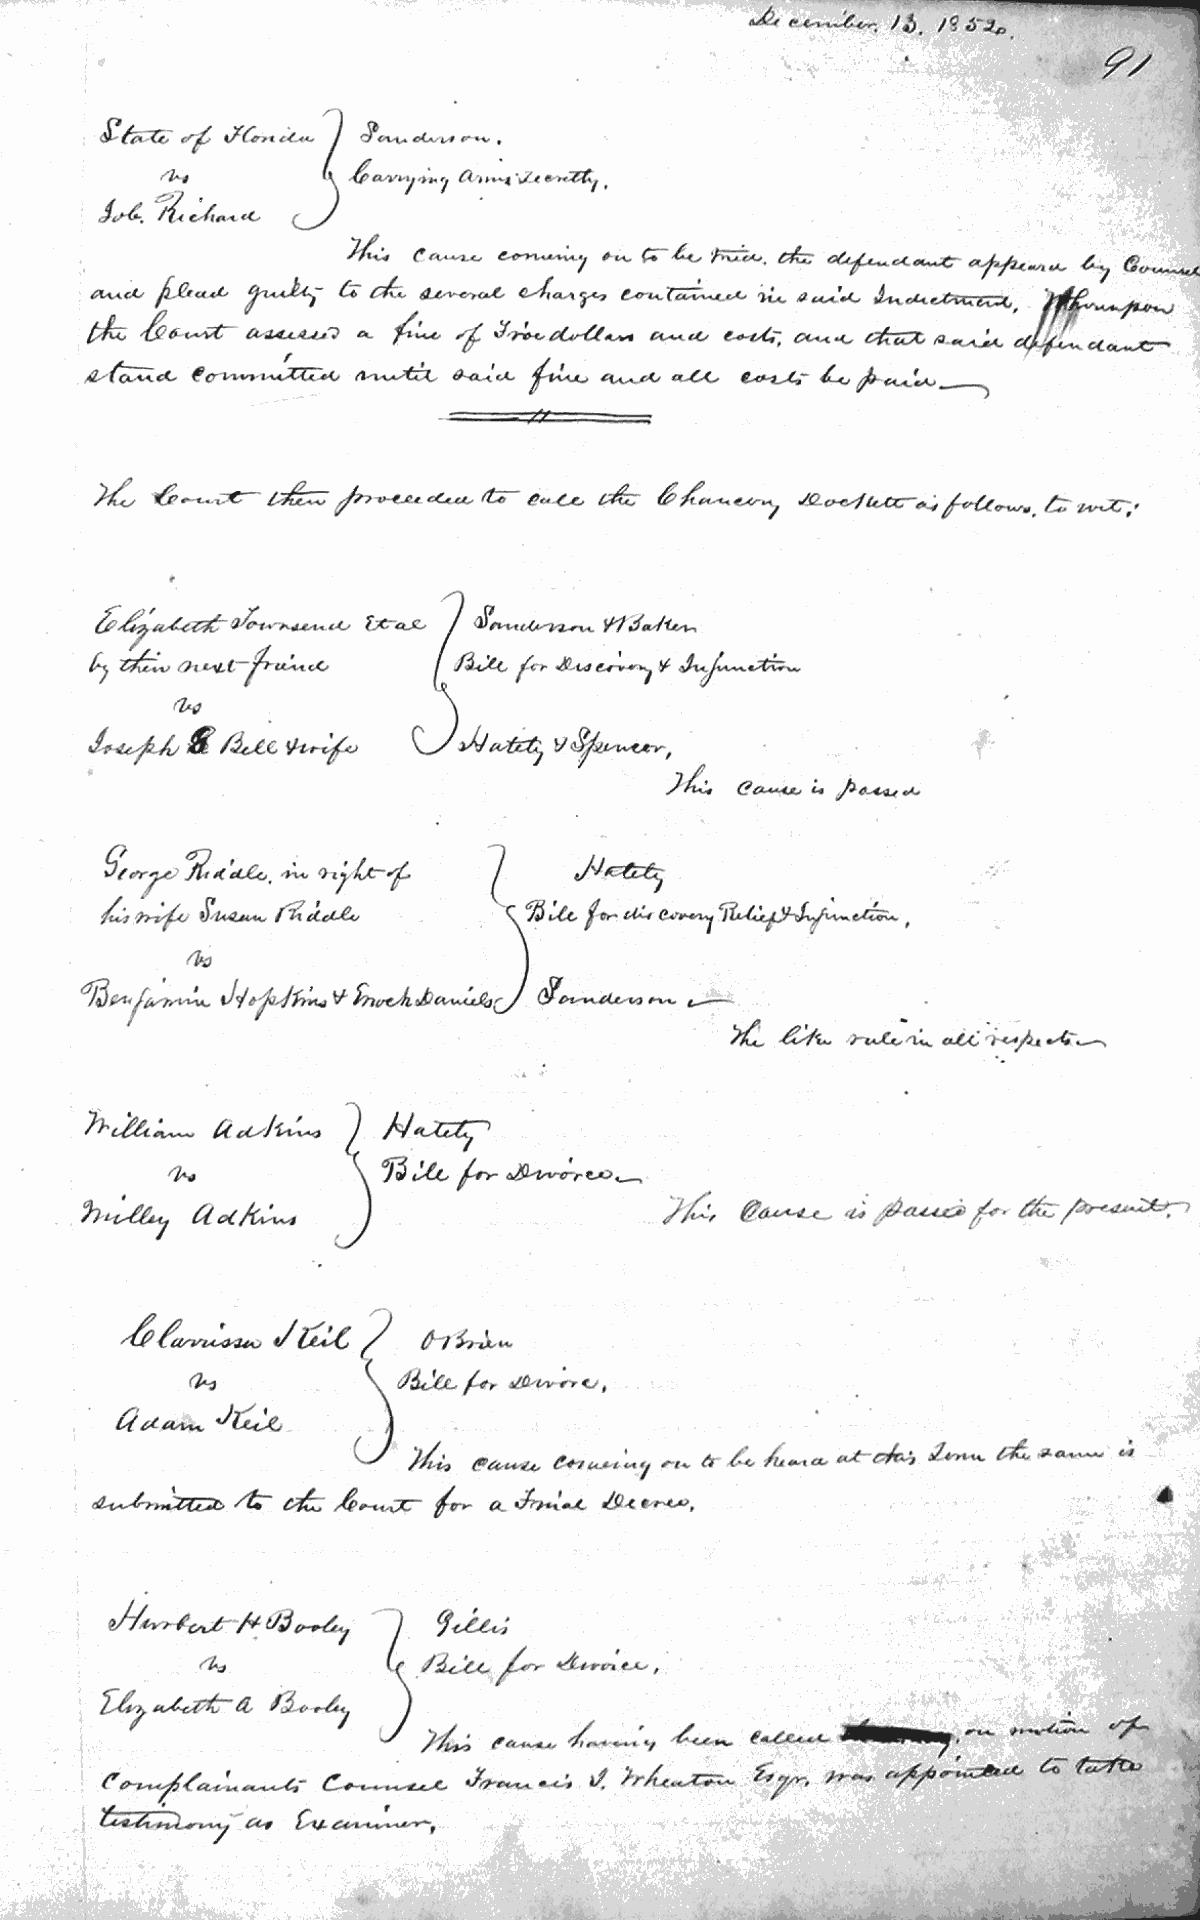 December. 13. 1852.
91
State of Florida Sanderson.
vs Carrying Arms Secretly.
Job. Richard
This cause coming on to be tried. the defendant appeard by Counsel
and plead guilty to the several charges contained in said Indictment, Whereupon
the Court assesses a fine of Five dollars and costs, and that said defendant
stand committed until said fine and all costs be paid
The Court then proceeded to call the Chancery Dockett as follows, to wit:
Elizabeth Townsend et al Sanderson & Baker
by their next friend Bill for Discovery & Injunction
vs
Joseph Bell & wife Hately & Spencer,
This cause is passed
George Riddle, in right of Hately
his wife Susan Riddle Bill for discovery Relief & Injunction,
vs
Benjamin Hopkins & Enoch Daniels Sanderson
The like rule in all respects
William Adkins Hately
vs Bill for Divorce
Milley Adkins This Cause is passed for the present.
Clarrissa Keil OBrien
vs Bill for Divorce,
Adam Keil
This cause coming on to be heard at this Term the same is
submitted to the Court for a Final Decree.
Hurbert H Booley Gillis
vs Bill for Divorce,
Elizabeth A Booley
This cause having been called on motion of
Complainants Counsel Francis I. Wheaton Esqr. was appointed to take
testimony as Examiner,